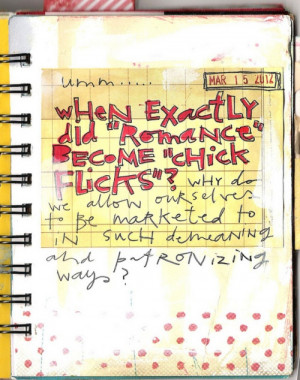 umm.....
MAR 15 2012
WHEN EXACTLY
did "ROMANCE"
BECOME "CHICK
FLICKS"? WHY do
we allow ourselves
to BE MARKETED TO
IN SUCH demeaning
and pATRONIZING
ways?